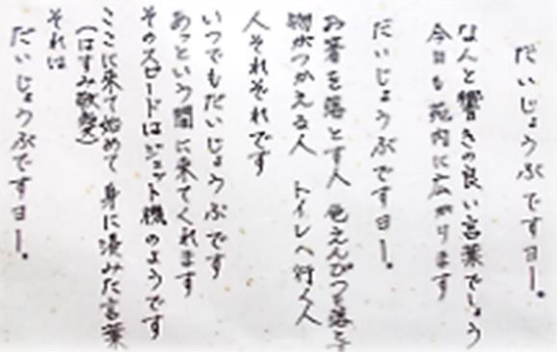 だいじょうぶですヨー。
なんと響きの良い言葉でしょう
今日も苑内に広がります
だいじょうぶですヨー。
お箸を落とす人 色えんぴつを落とす
物がつかえる人 トイレへ行く人
人それぞれです
いつでもだいじょうぶです
あっという間に来てくれます
そのスピードはジェット機のようです
ここに来て始めて身に済みた言葉
(はすみ敬愛)
それは
だいじょうぶですヨー。